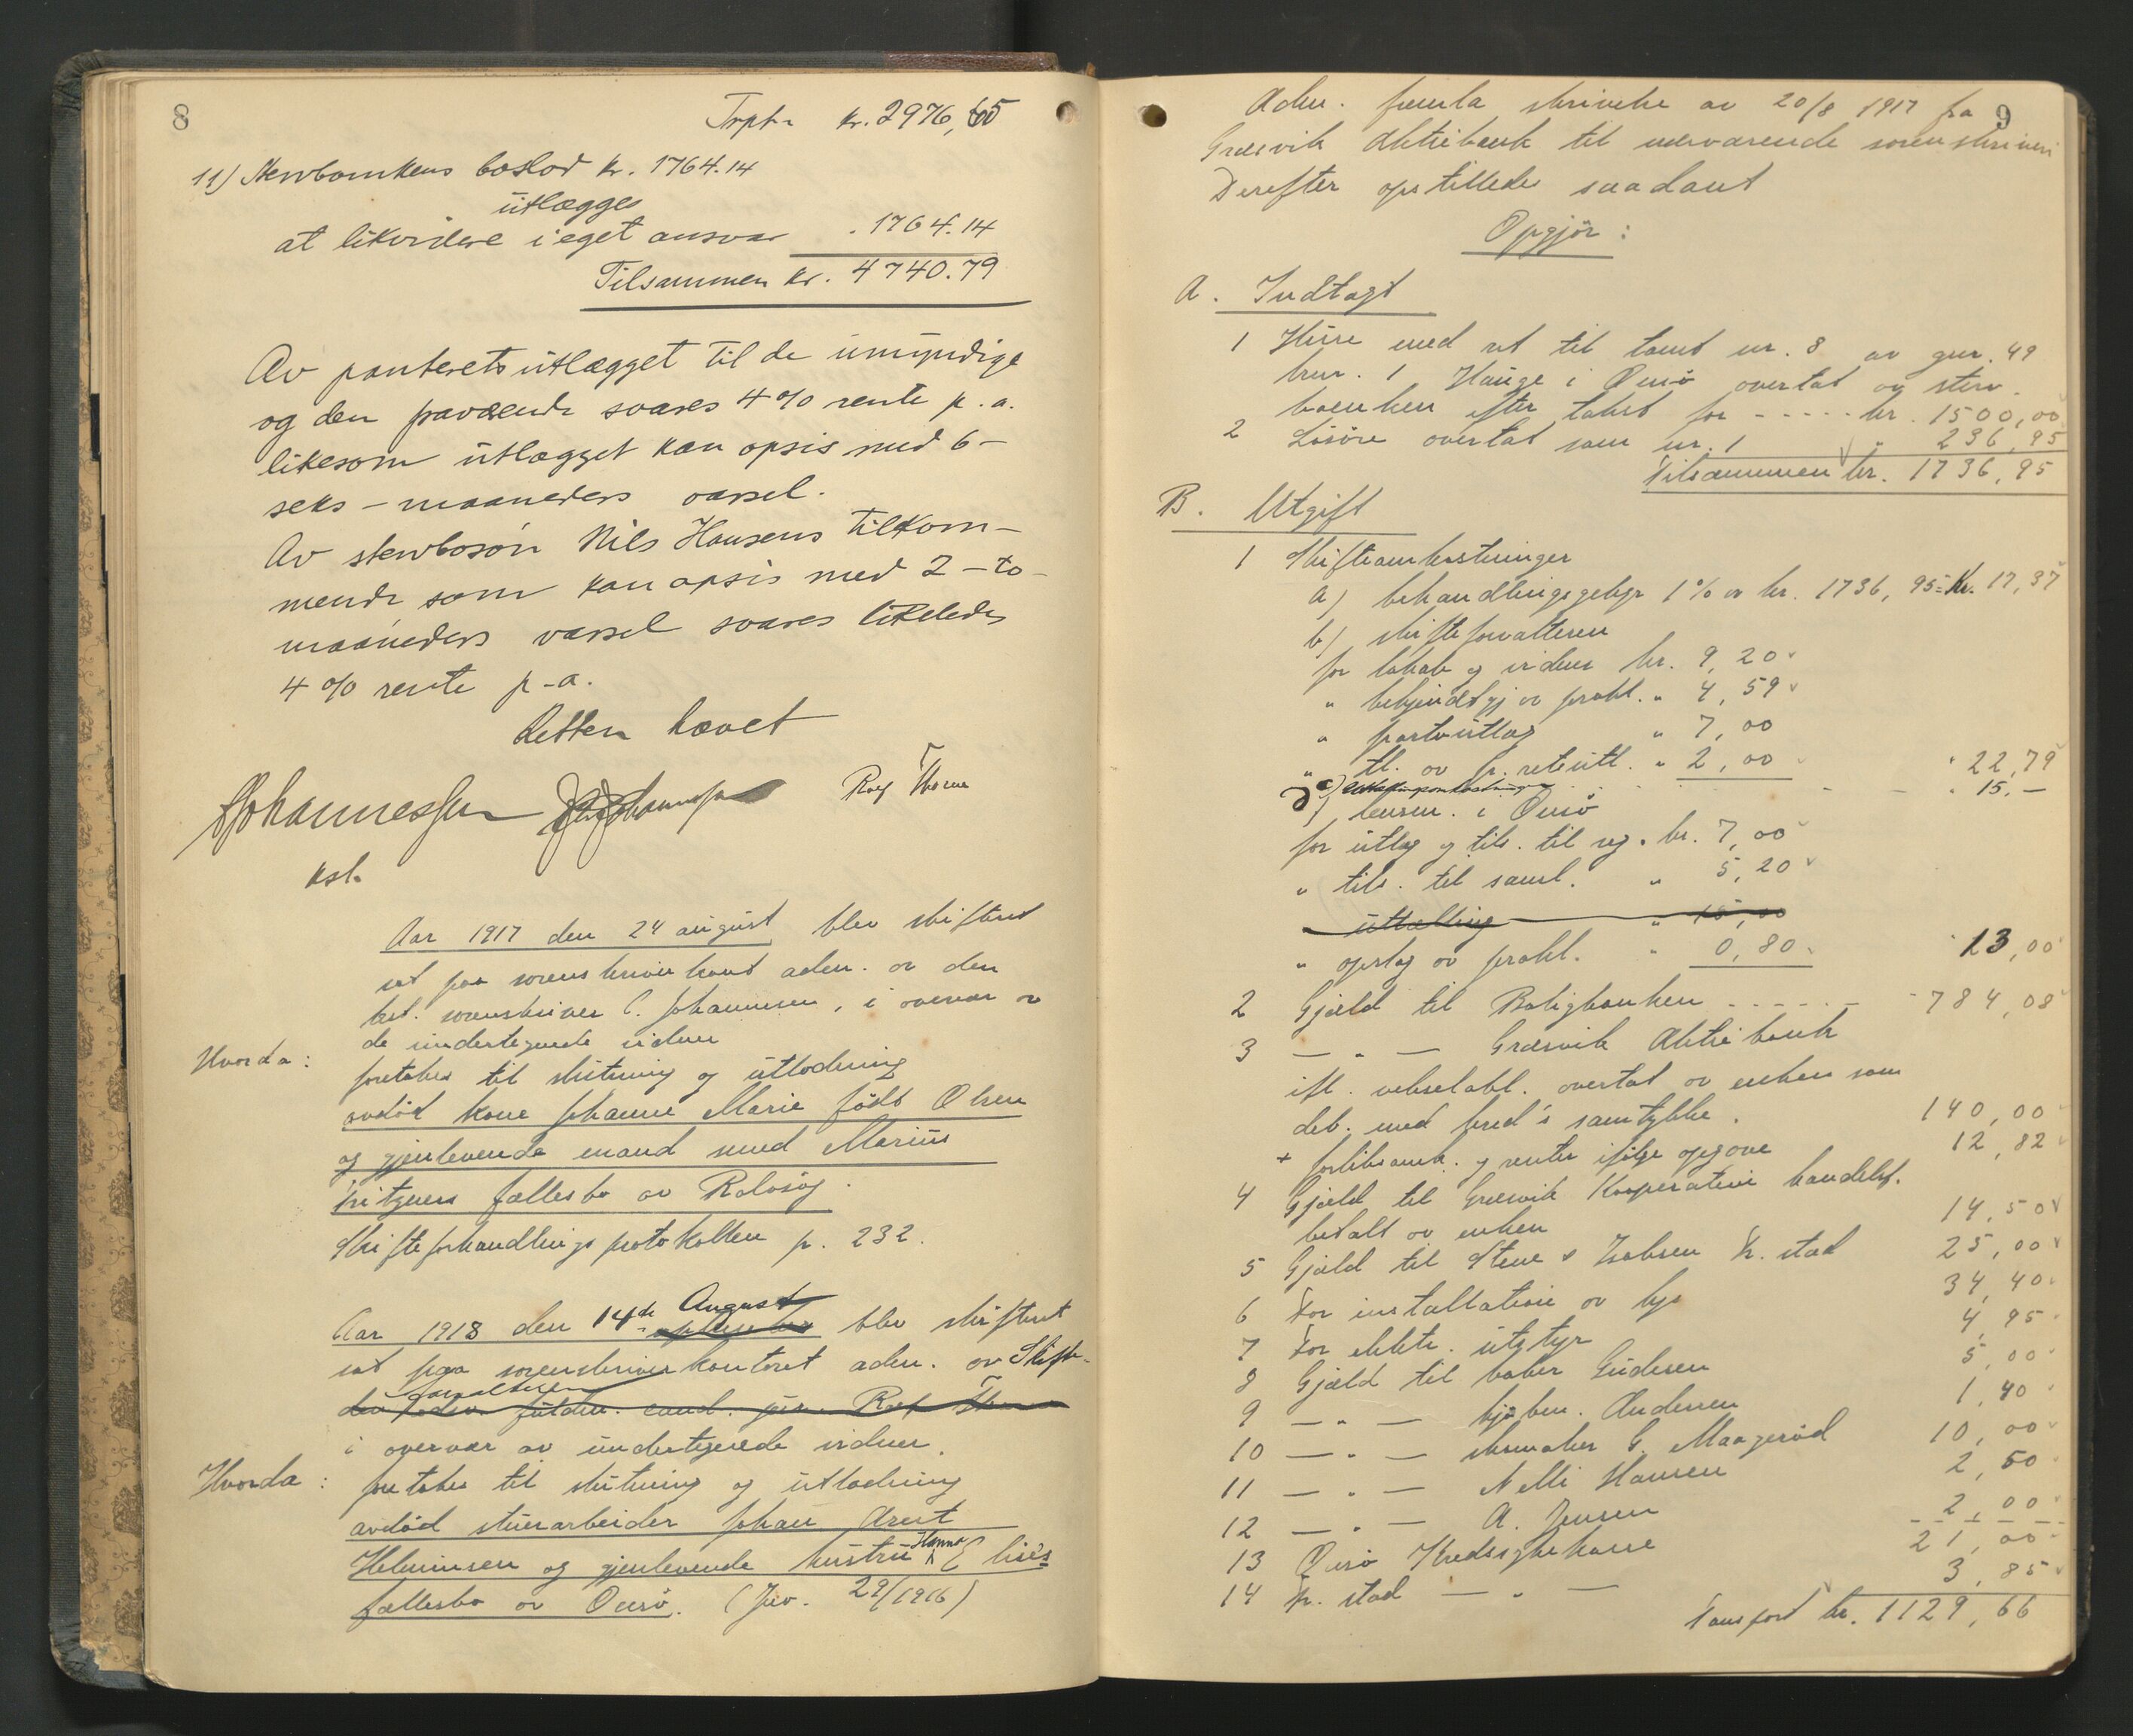 8
Trpt. kr. 2976,65
11) Stervboenkens boslod kr. 1764.14
utlægges
at likvidere i eget ansvar . 1764.14
Tilsammen kr. 4740.79
Av panteretsutlægget til de umyndige
og den fraværende svares 4 % rente p. a.
likesom utlægget kan opsis med 6 -
seks - maaneders varsel.
Av stervbosøn Nils Hansens tilkom-
mende som kan opsis med 2 - to -
maaneders varsel svares likeledes
4 % rente p. a.
Retten hævet
Johannessen Rolf Thorne
kst.
Aar 1917 den 24 august blev skifteret
sat paa sorenskriverkont. adm. av den
kst. sorenskriver C. Johannessen, i overvær av
de undertegnede vidner
Hvorda:
foretokes til slutning og utlodning
avdød kone Johanne Marie født Olsen
og gjenlevende mand smed Marius
fællesbo av Rolvsøy.
Skifteforhandlingsprotokollen p. 232.
Aar 1918 den 14de August blev skifteret
sat paa sorenskriverkontoret adm. av Skifte-
forvalteren
i overvær av undertegnede vidner.
Hvorda:
foretokes til slutning og utlodning
avdød stuerarbeider Johan Arent
Helminsen og gjenlevende hustru Hanna Elises
fællesbo av Onsø. (Jur. 29/1916)
9
Adm. fremla skrivelse av 20/8 1917 fra
Græsvik Aktiebank til nærværende sorenskriveri
Derefter opstilledes saadant
Opgjør:
A. Indtægt
1 Huse med ret til tomt nr. 8 av gnr. 49
brnr. 1 Hauge i Onsø overtat av sterv-
boenken efter takst for - - - - - kr. 1500,00
2 Løsøre overtat som nr. 1 " 236,95
Tilsammen kr. 1736,95
B. Utgift
1 Skifteomkostninger
a) behandlingsgebyr 1% av kr. 1736,95 = kr. 17,37
b) skifteforvalteren
for lokale og vidner kr. 9,20
" bekjendtgj. av prokl. " 4,59
" portoutlæg " 7,00
" tl. av p. retsutl. " 2,00 " 22,79
" 15.-
lensm. i Onsø
for utlæg og tils. til reg. kr. 7,00
" tils. til saml. " 5,20
" uttælling " 15,00
" opslag av prokl. " 0,80 " 13,00
2 Gjæld til Boligbanken - - - - - - " 784,08
3 — " — Græsvik Aktiebank
ifl. vekselobl. overtat av enken som
deb. med kred's samtykke. 140,00
+ forliksomk. og renter ifølge opgave 12,82
4 Gjæld til Græsvik Kooperative handelsf.
betalt av enken 14,50
5 Gjæld til Steen & Isaksen Fr.stad 25,00
6 For installation av lys 34,40
7 For elektr. utstyr 4,95
8 Gjæld til baker Gudesen 5,00
9 — " — kjøbm. Andersen 1,40
10 — " — skomaker G. Maagerød 10,00
11 — " — Nelli Hansen 2,50
12 — " — A. Jensen 2,00
13 Onsø Kredssykekasse 21,00
14 Fr.stad — " — 3,85
Transport kr. 1129,66